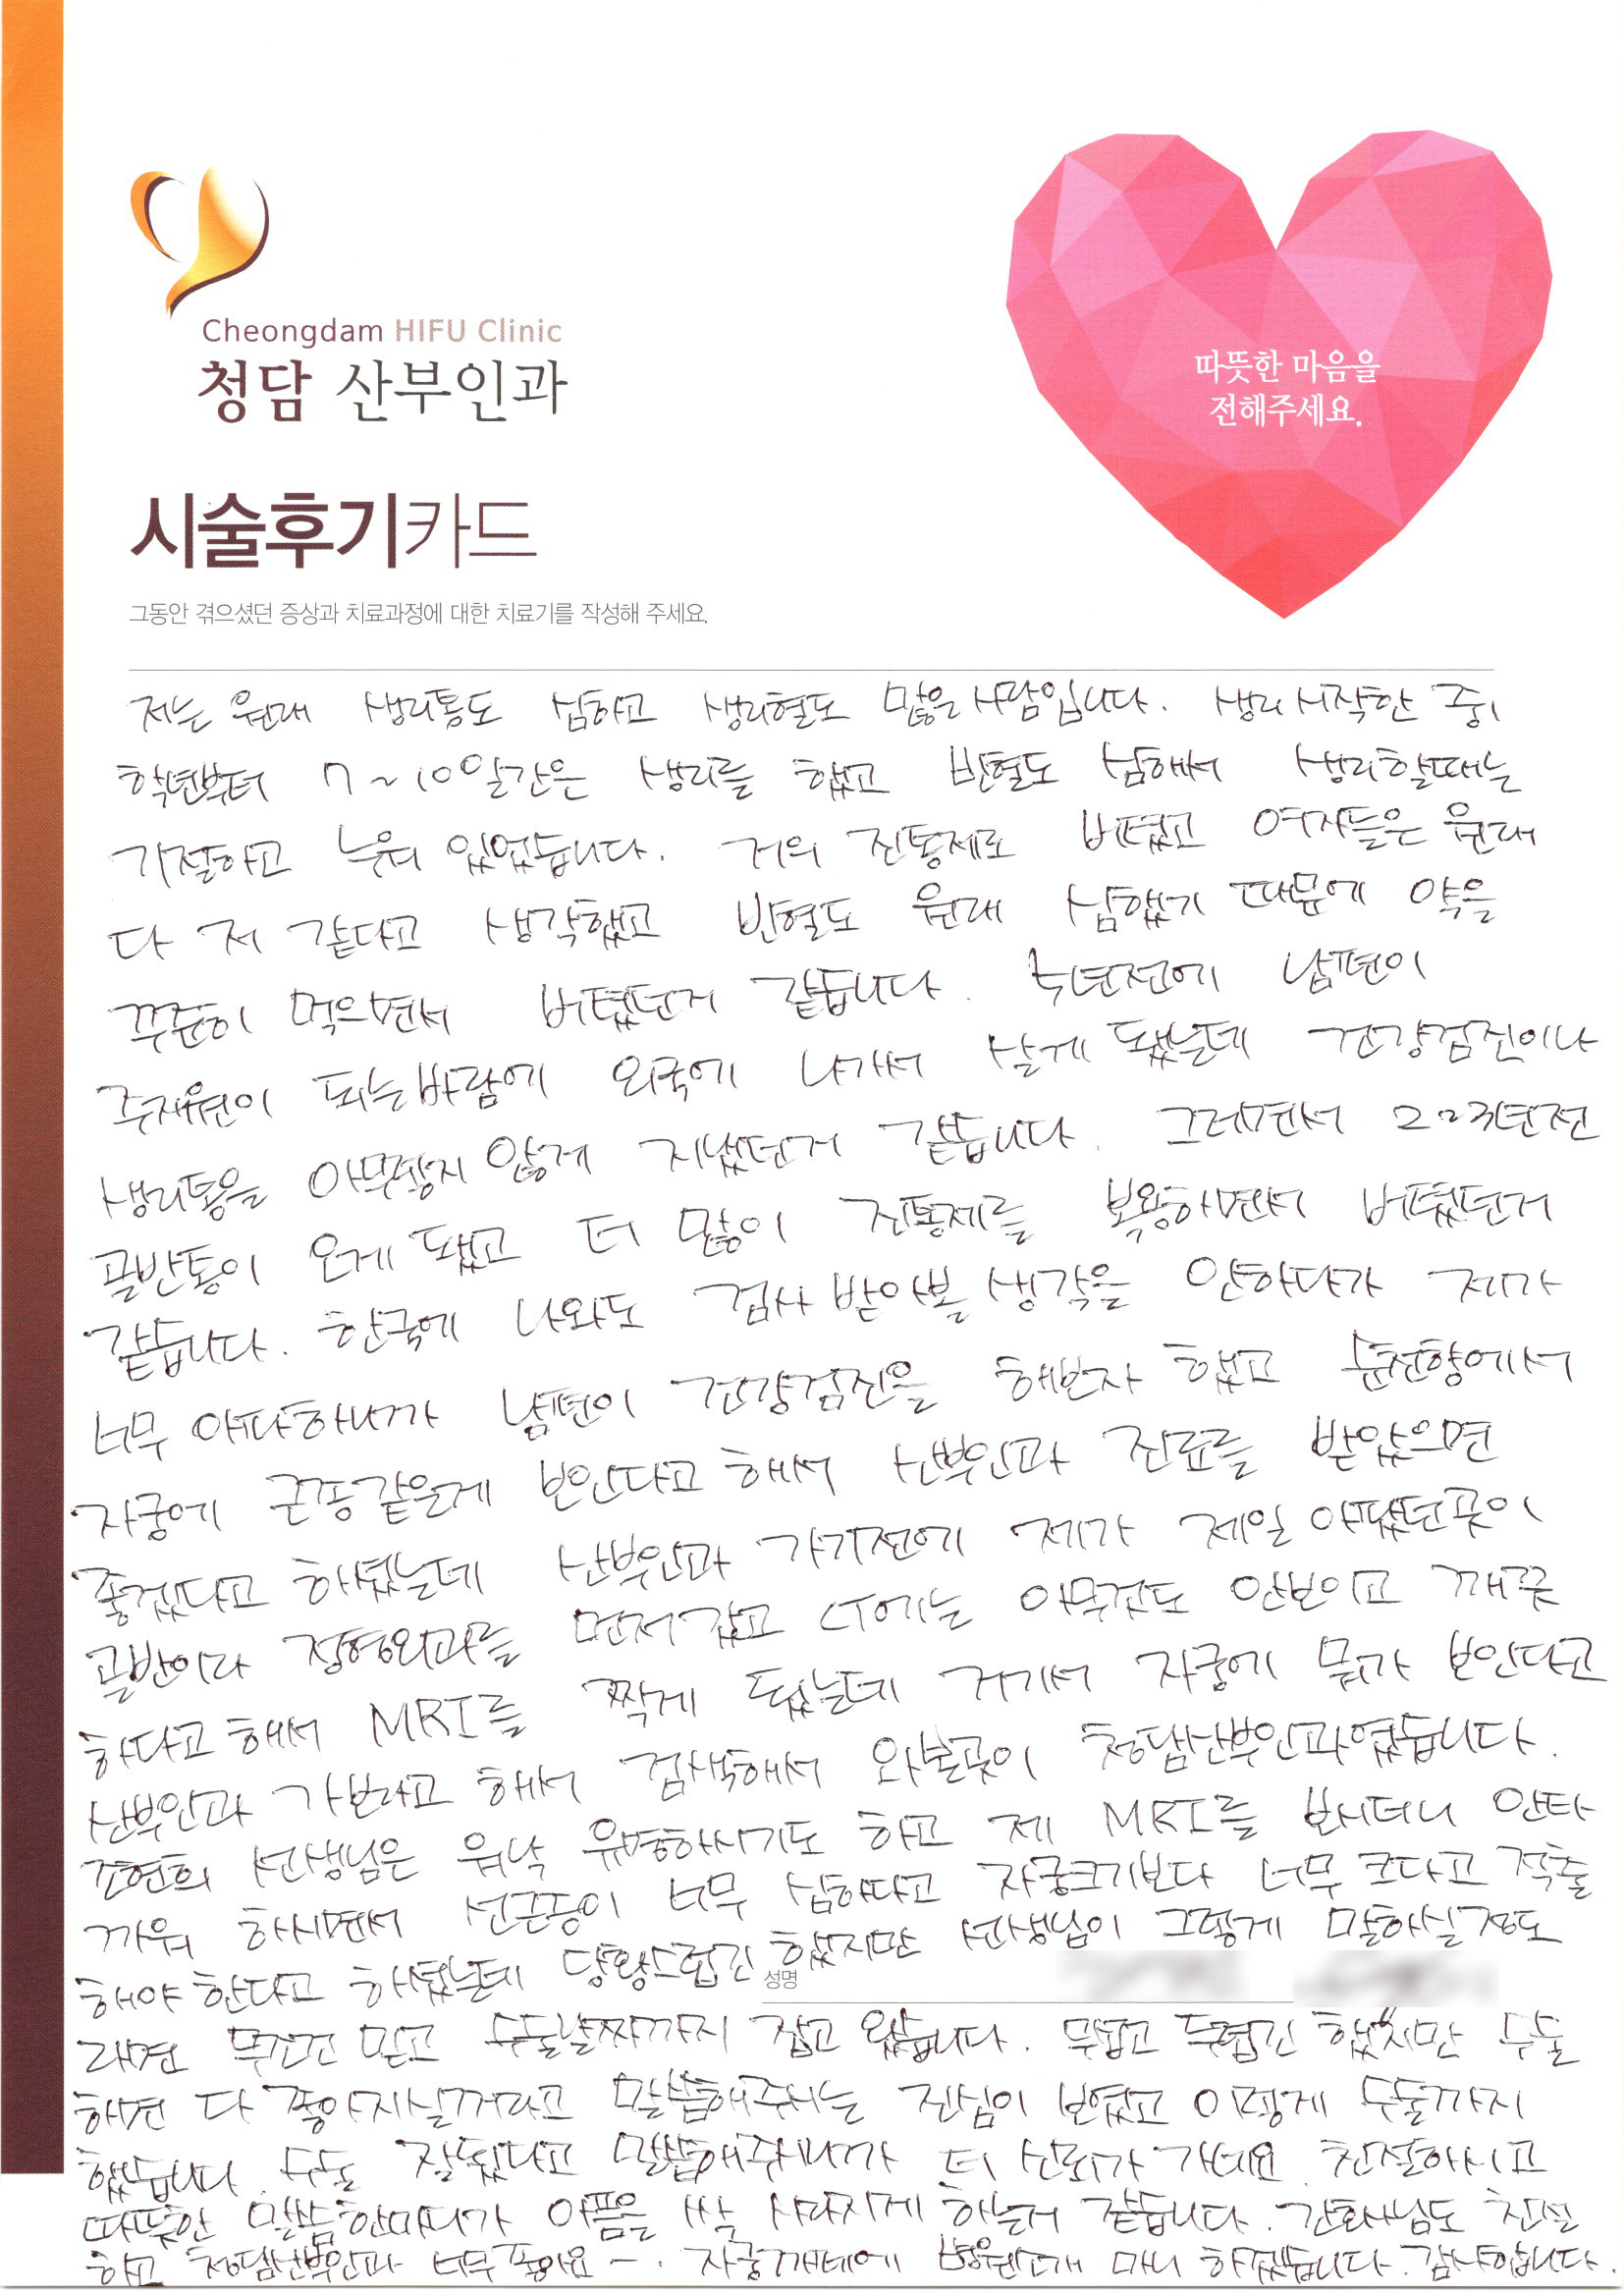 Cheongdam HIFU Clinic
청담 산부인과
따뜻한 마음을
전해주세요.
시술후기카드
그동안 겪으셨던 증상과 치료과정에 대한 치료기를 작성해 주세요.
저는 원래 생리통도 심하고 생리혈도 많은 사람입니다. 생리 시작한 중1
학년부터 7~10일간은 생리를 했고 빈혈도 심해서 생리할때는
기절하고 누워 있었습니다. 거의 진통제로 버텼고 여자들은 원래
다 저 같다고 생각했고 빈혈도 원래 심했기 때문에 약을
꾸준히 먹으면서 버텼던거 같습니다. 수년전에 남편이
주재원이 되는바람에 외국에 나가서 살게 됐는데 건강검진이나
생리통을 아무렇지 않게 지냈던거 같습니다. 그러면서 2~3년전
골반통이 오게 됐고 더 많이 진통제를 복용하면서 버텼던거
같습니다. 한국에 나와도 검사 받아볼 생각을 안하다가 제가
너무 아파하니까 남편이 건강검진을 해보자 했고 순천향에서
자궁에 근종같은게 보인다고 해서 산부인과 진료를 받았으면
좋겠다고 하셨는데 산부인과 가기전에 제가 제일 아팠던곳이
골반이라 정형외과를 먼저갔고 CT에는 아무것도 안보이고 깨끗
하다고 해서 MRI를 찍게 됐는데 거기서 자궁에 뭐가 보인다고
산부인과 가보라고 해서 검색해서 와본곳이 청담산부인과였습니다.
조현희 선생님은 워낙 유명하시기도 하고 제 MRI를 보시더니 안타
까워 하시면서 선근증이 너무 심하다고 자궁크기보다 너무 크다고 적출
해야 한다고 하셨는데 당황스럽긴 했지만 선생님이 그렇게 말하실정도
성명
라면 무조건 믿고 수술날짜까지 잡고 왔습니다. 무섭고 두렵긴 했지만 수술
하면 다 좋아지실꺼라고 말씀해주시는 진심이 보였고 이렇게 수술까지
했습니다. 수술 잘됐다고 말씀해주시니까 더 신뢰가 가네요. 친절하시고
따뜻한 말씀한마디가 아픔을 싹 사라지게 하는거 같습니다. 간호사님도 친절
하고 청담산부인과 너무 좋아요~. 자궁카페에 병원소개 마니 하겠습니다. 감사합니다.